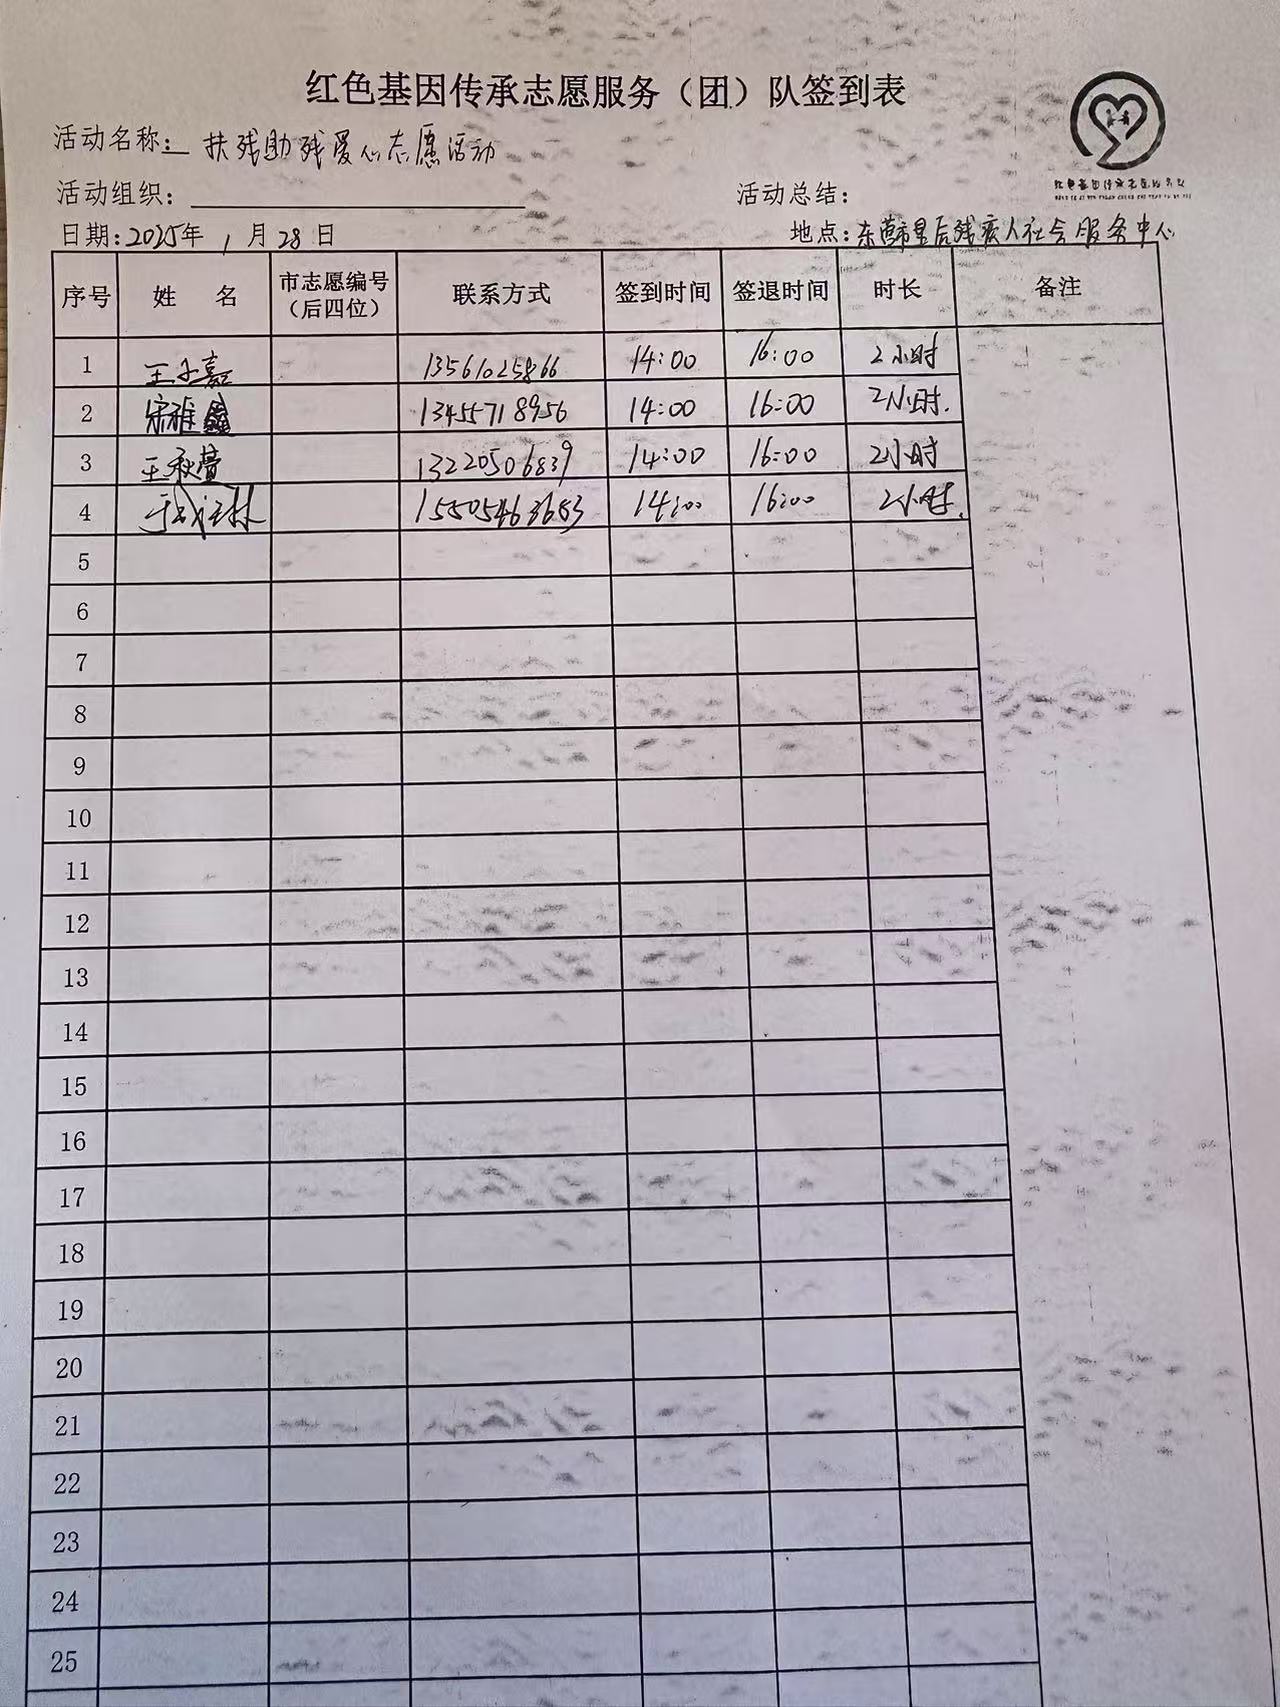 红色基因传承志愿服务（团）队签到表
活动名称： 扶残助残爱心志愿活动
活动组织：
活动总结：
日期：2025年 1 月 28 日
地点：东营市星后残疾人社会服务中心
序号 姓 名 市志愿编号（后四位） 联系方式 签到时间 签退时间 时长 备注
1 王子嘉 13561025866 14:00 16:00 2小时
2 宋雅鑫 13455718956 14:00 16:00 2小时.
3 王秋莹 13220506839 14:00 16:00 2小时
4 15505463653 14:00 16:00 2小时.
5
6
7
8
9
10
11
12
13
14
15
16
17
18
19
20
21
22
23
24
25